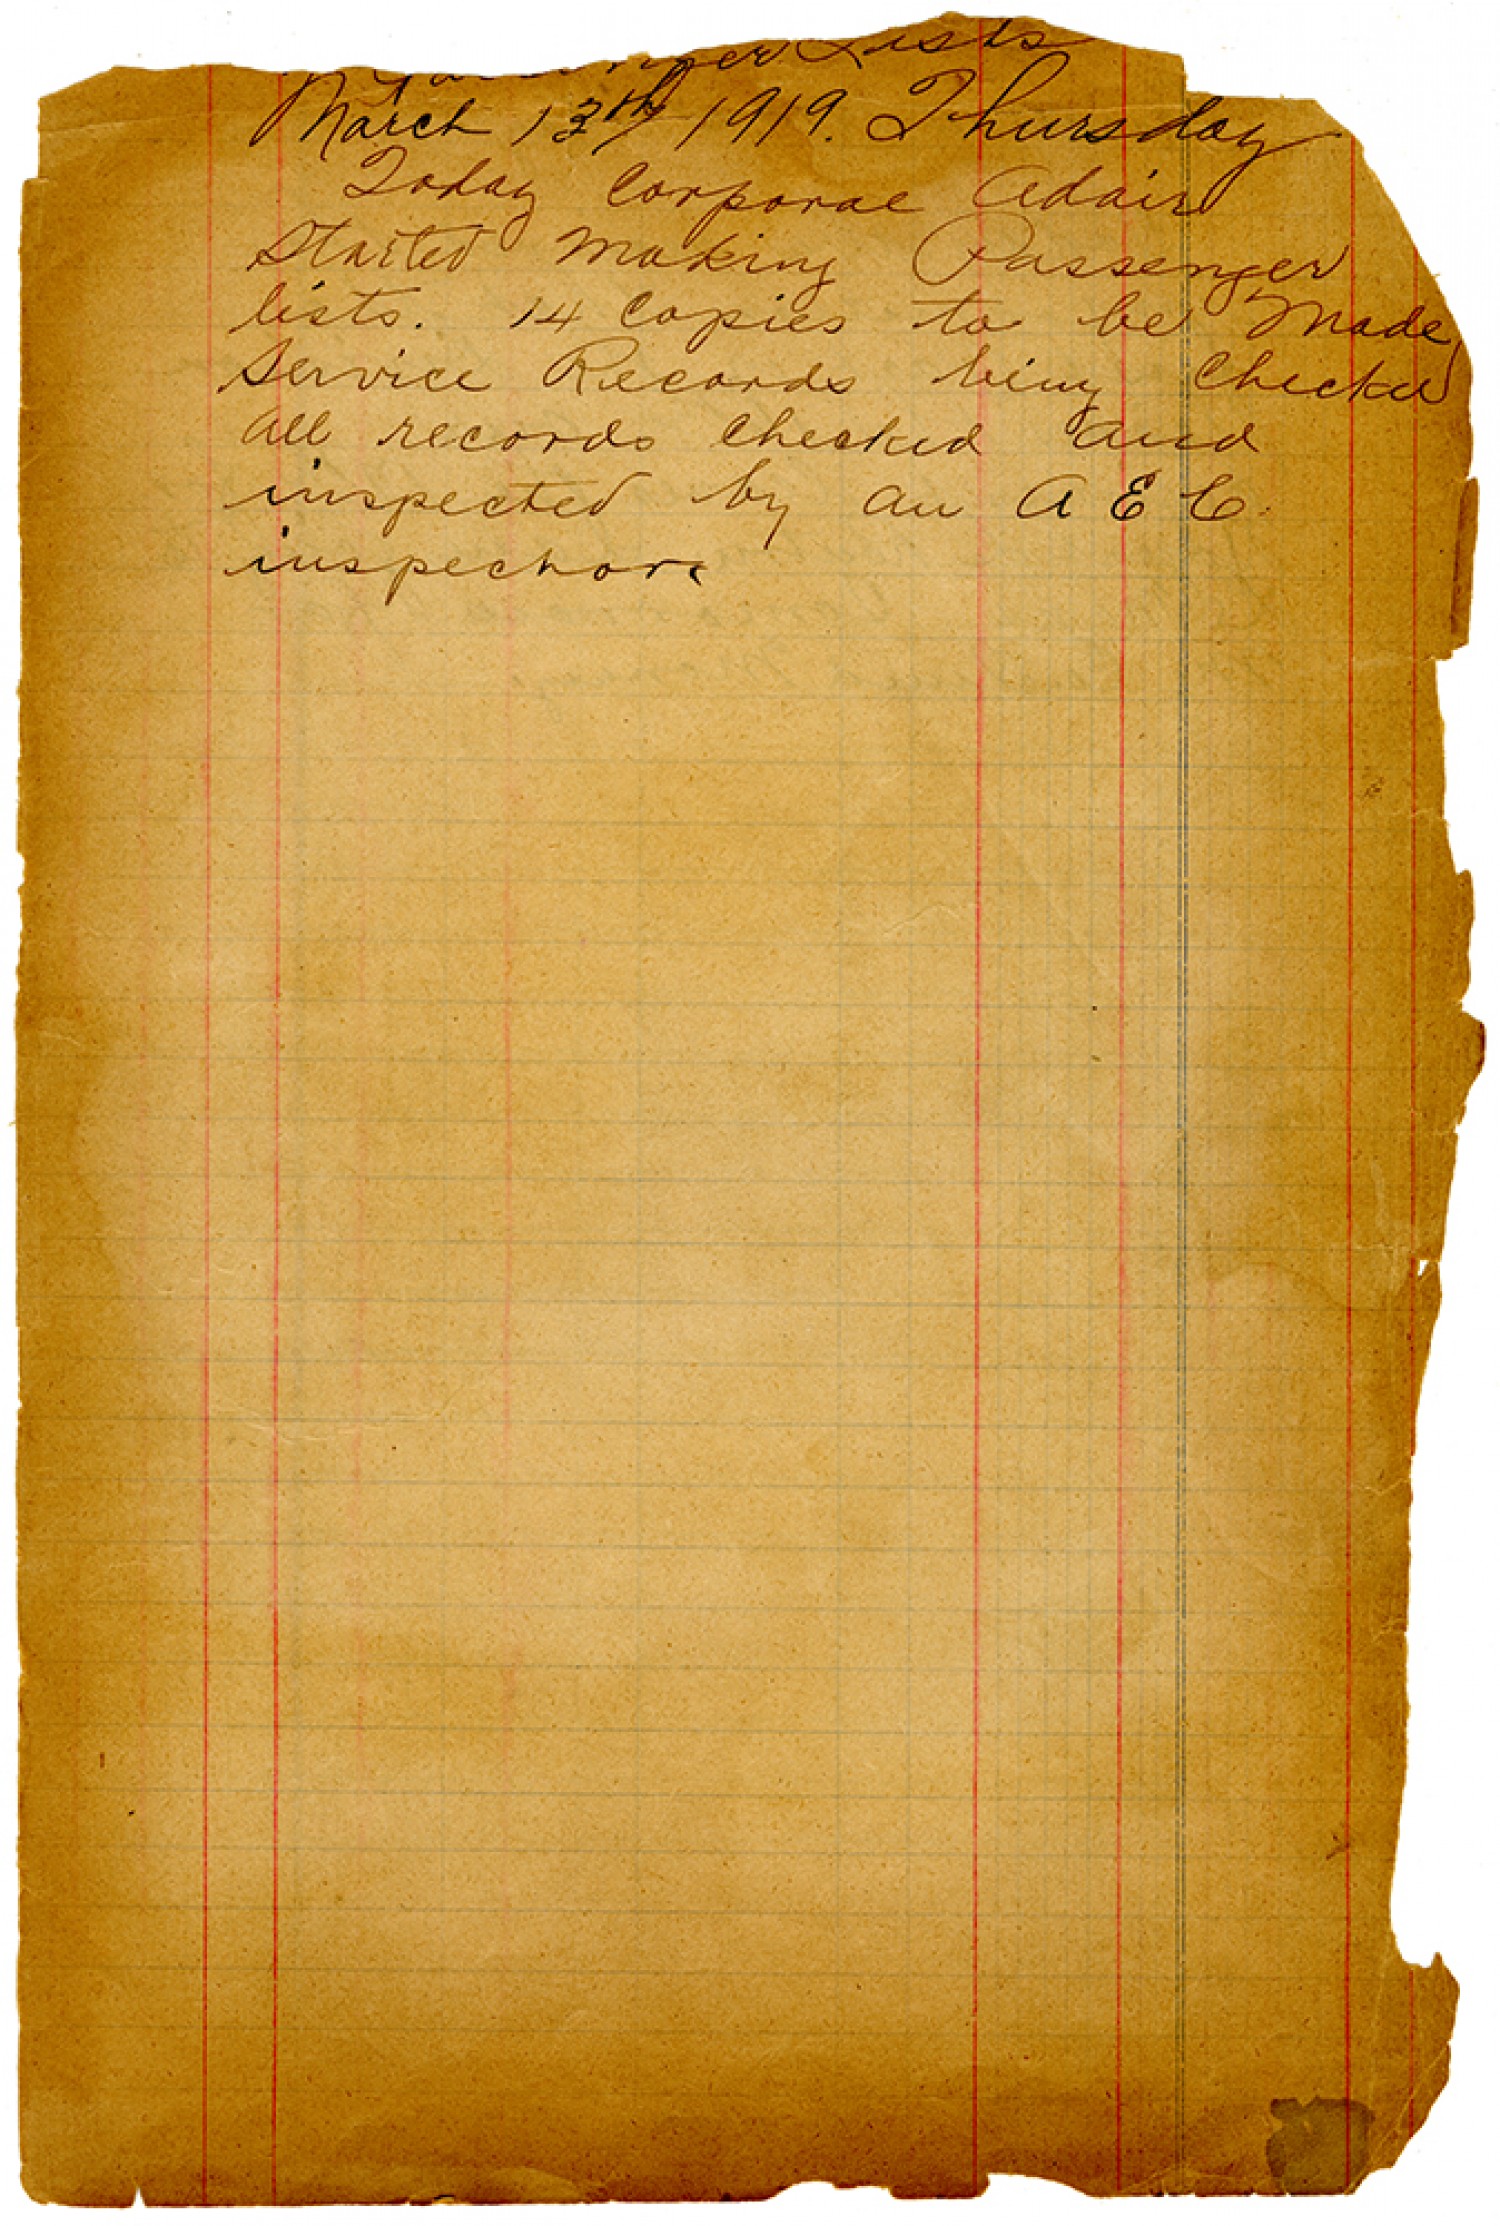 Passenger Lists
March 13th 1919. Thursday
Today Corporal Adair
Started Making Passenger
lists. 14 Copies to be Made,
Service Records being Checked
All records Checked and
inspected by an A E C.
inspector.